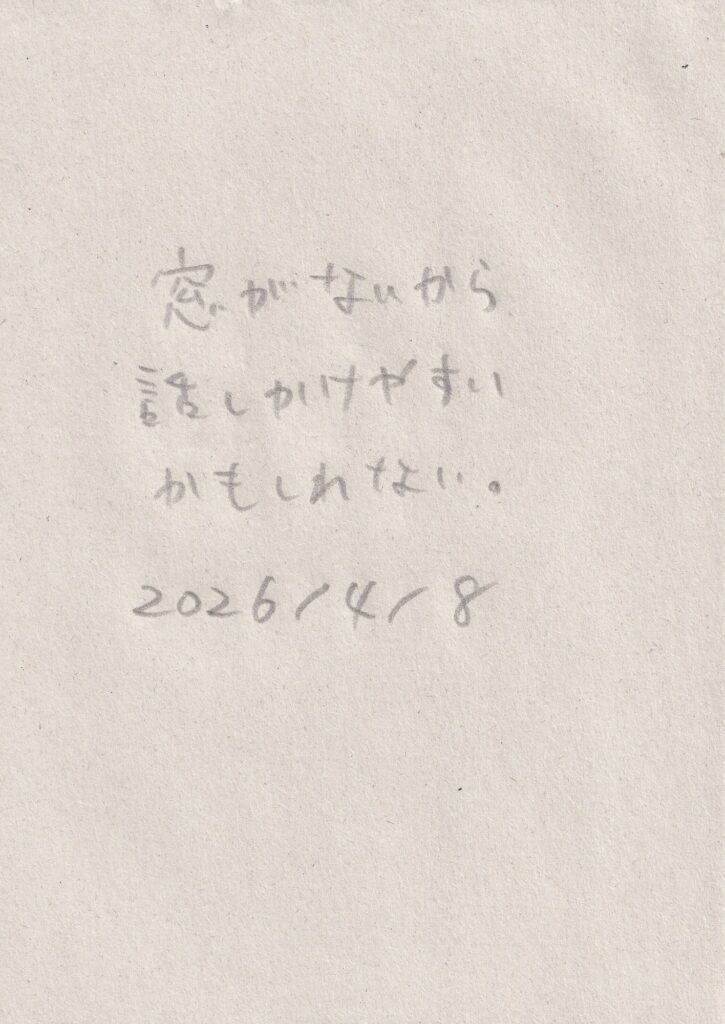 窓がないから
話しかけやすい
かもしれない。
2026/4/8